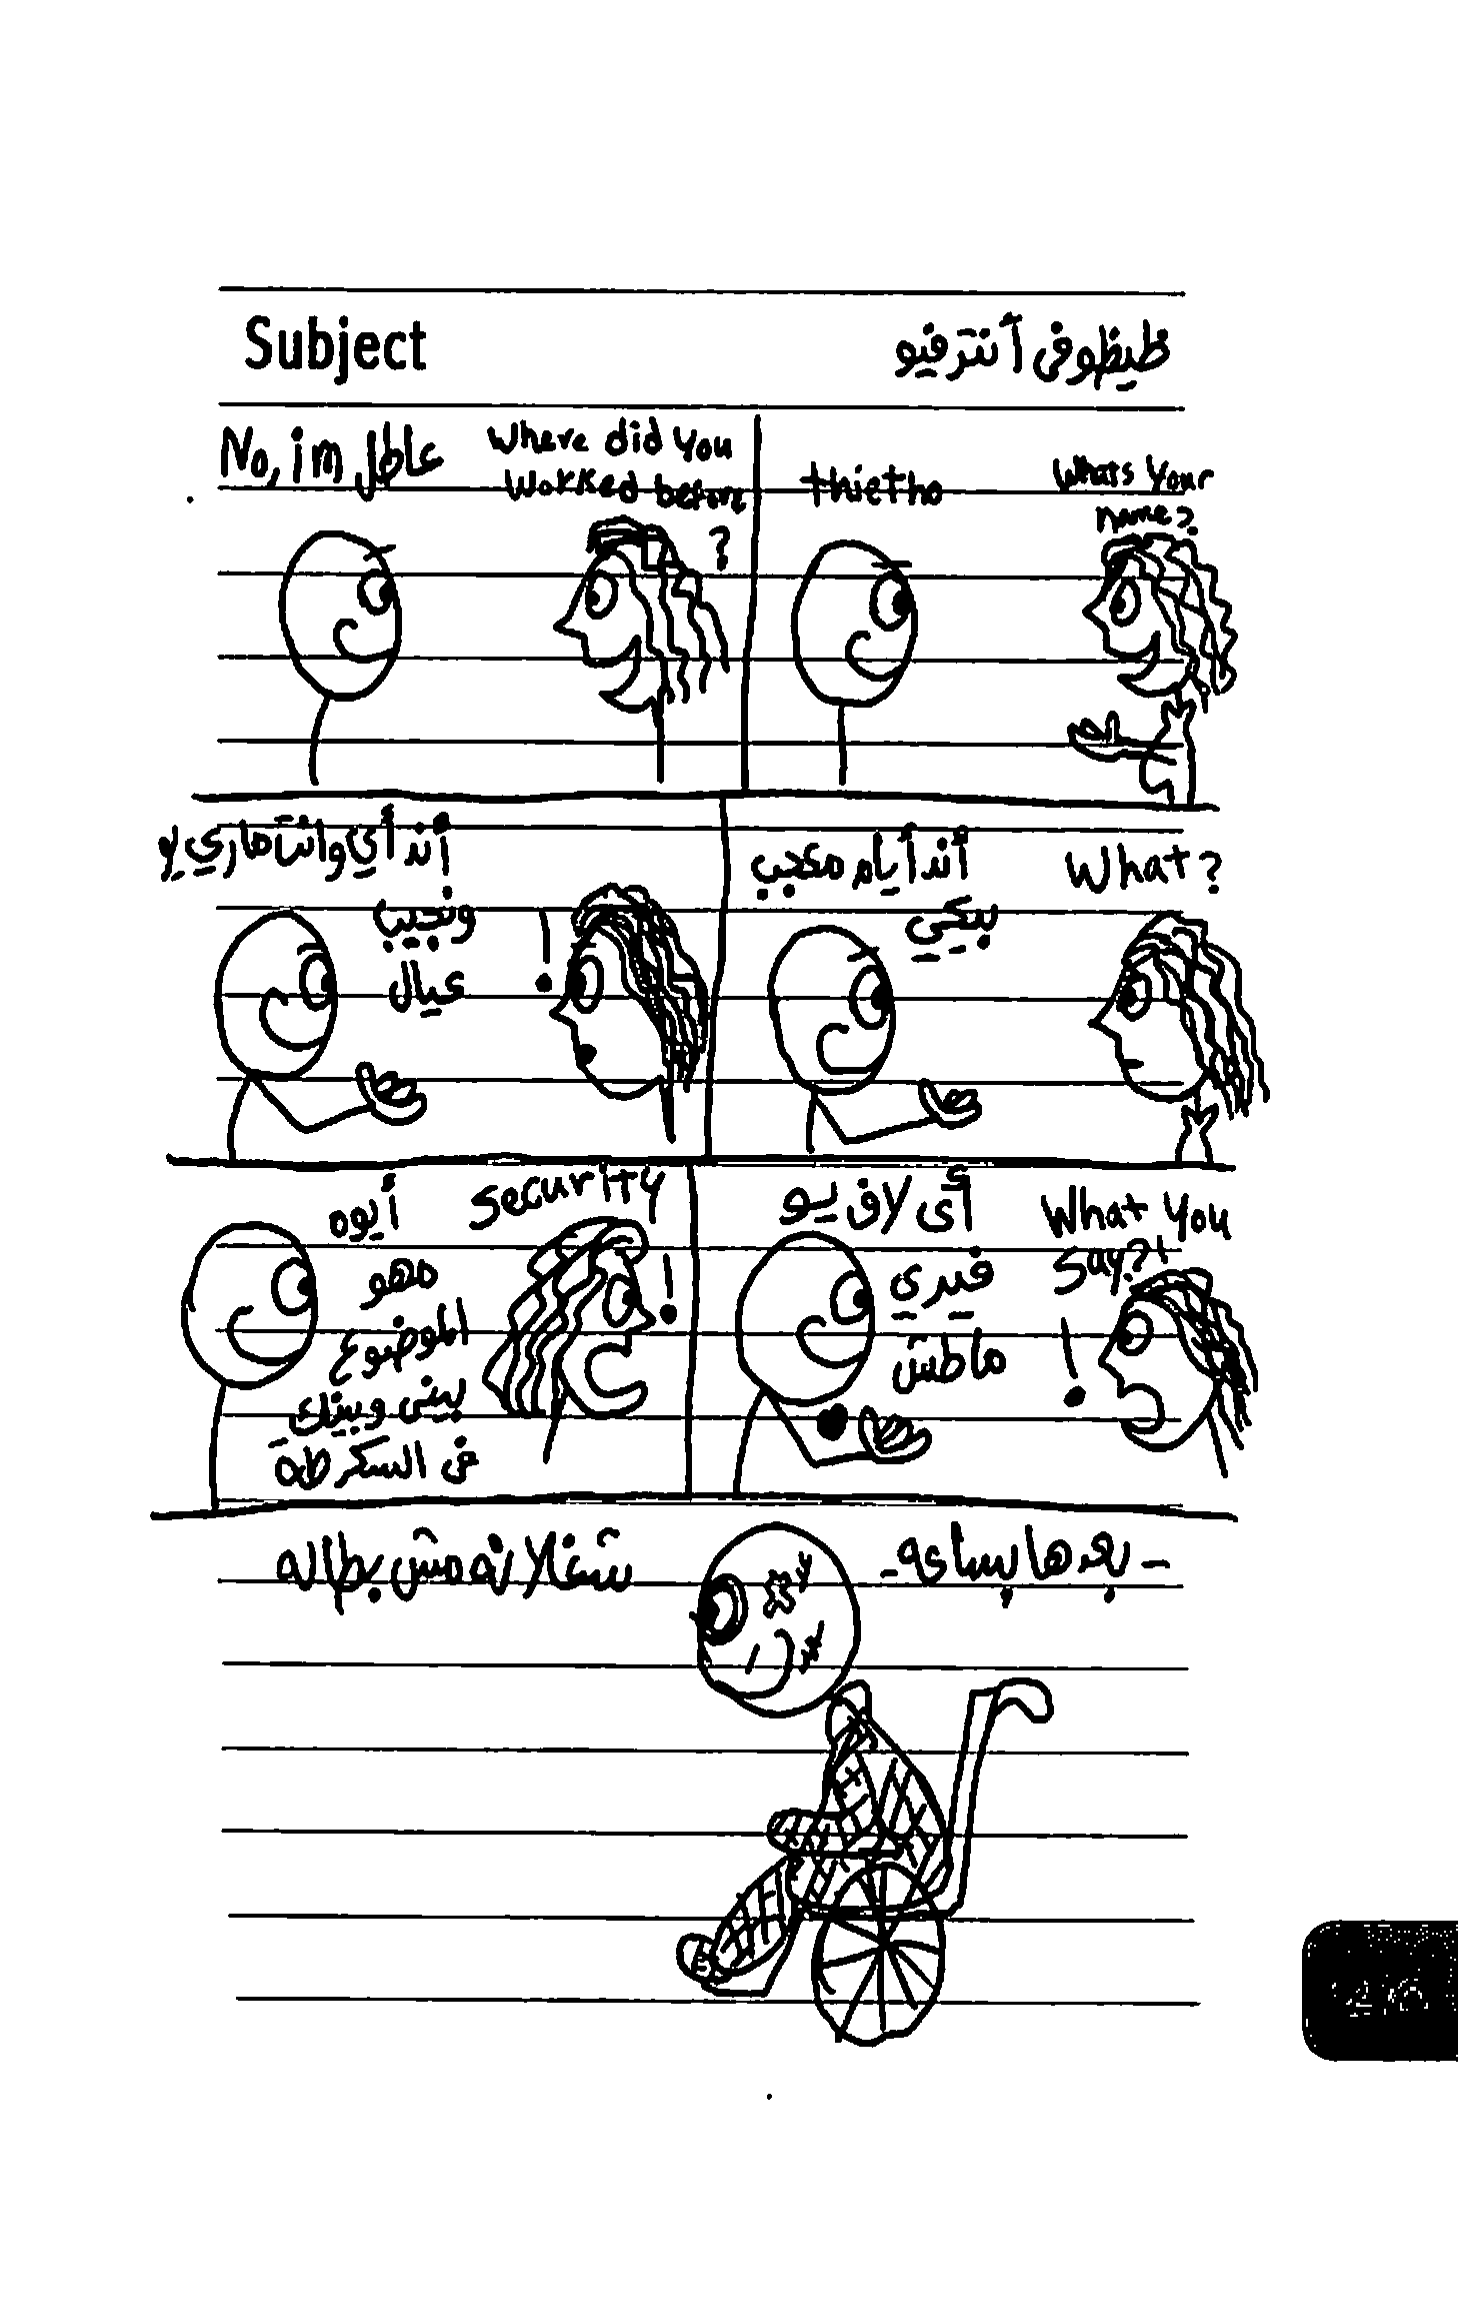 Subject
ظيظو فى أنترفيو
Whats Your
name?
thietho
Where did You
Worked before
?
No, im عاطل
What?
أند أيام معجب
بيكي
!
أند أي وانت ماري يو
ونجيب
عيال
What You
Say?!
!
أى لاف يو
فيري
ماطش
Security
!
أيوه
مهو
الموضوع
بينى وبينك
فى السكرطه
- بعدها بساعه -
شغلانه مش بطاله